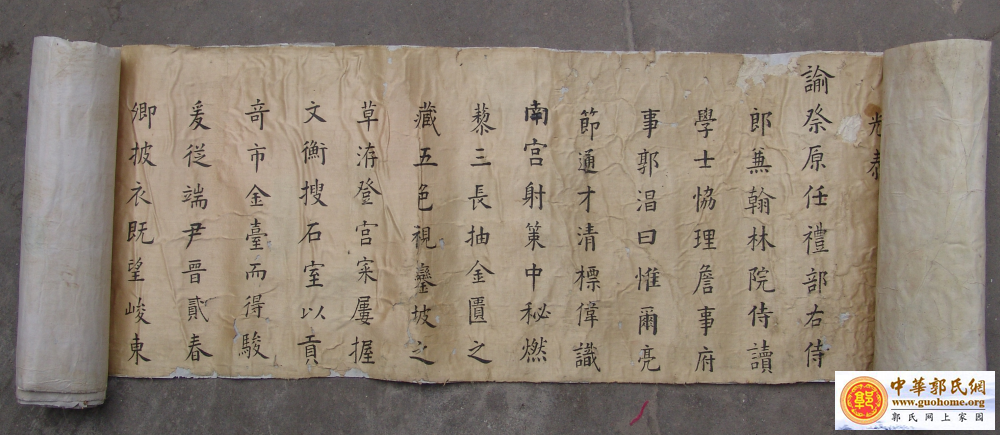 光
諭祭原任禮部右侍
郎兼翰林院侍讀
學士協理詹事府
事郭淐曰惟爾亮
節通才清標偉識
南宫射策中秘燃
藜三長抽金匱之
藏五色視鑾坡之
草洊登宫寀屢握
文衡搜石室以貢
竒市金臺而得駿
爰從端尹晋貳春
卿披衣既望峻東
中華郭氏網
www.guohome.org
郭氏网上家园